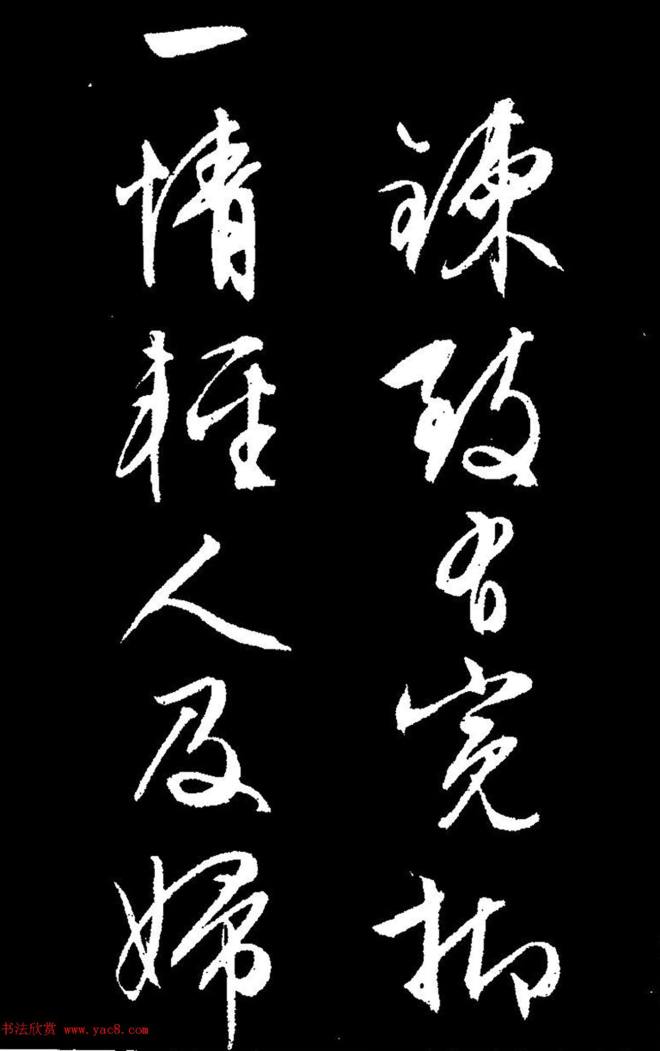 致有冤抑
一情人及婦
书法欣赏 www.yac8.com